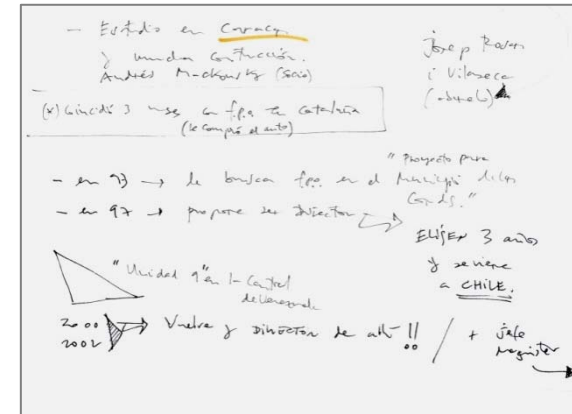 - Estudio en Caracas
y mucha contrucción.
Andrés Mackousky (socio)
Josep
i Vilaseca
(abuelo)
(x) Coincidió 3 meses con f.p.a. en Cataluña
(le compró el auto)
- en 93 → le buscan f.p.a. en el
"Proyecto para
Municipio de las
Conds."
- en 97 → propone ser Director
ELIGEN 3 años
y se viene
a CHILE.
"Unidad 9" en la Central
de Venezuela
2000
2002
Vuelve y DIRECTOR de allí !!
+ jefe
Magister